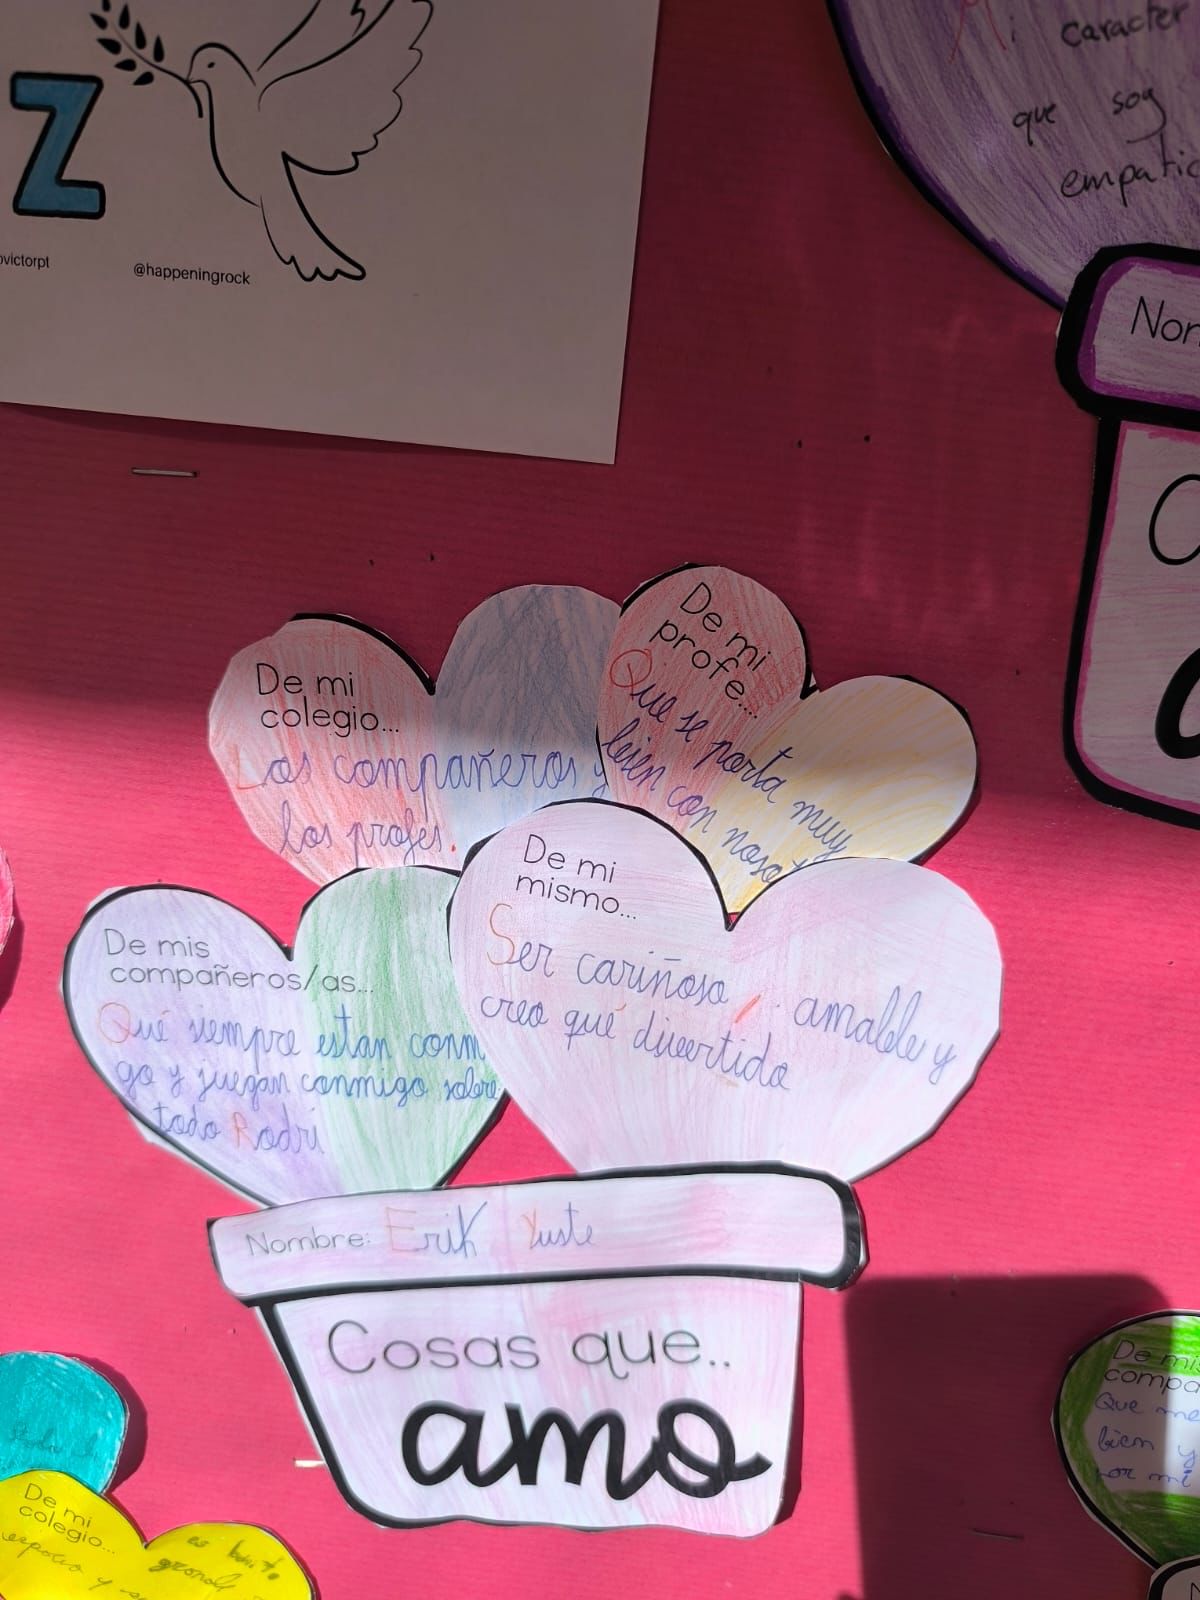 Z
ovictorpt
@happeningrock
Mi caracter
que soy
empatic
De mi
colegio...
Los compañeros y
los profes.
De mi
profe...
Que se porta muy
bien con nosot
De mi
mismo...
Ser cariñoso, amable y
creo qué divertido
De mis
compañeros/as...
Qué siempre estan conmi
go y juegan conmigo sobre
todo Rodri
Nombre: Erik Yuste
Cosas que..
amo
De mis
compa
Que me
bien y
por mi
De mi
colegio...
espacio y
es bonito
grande